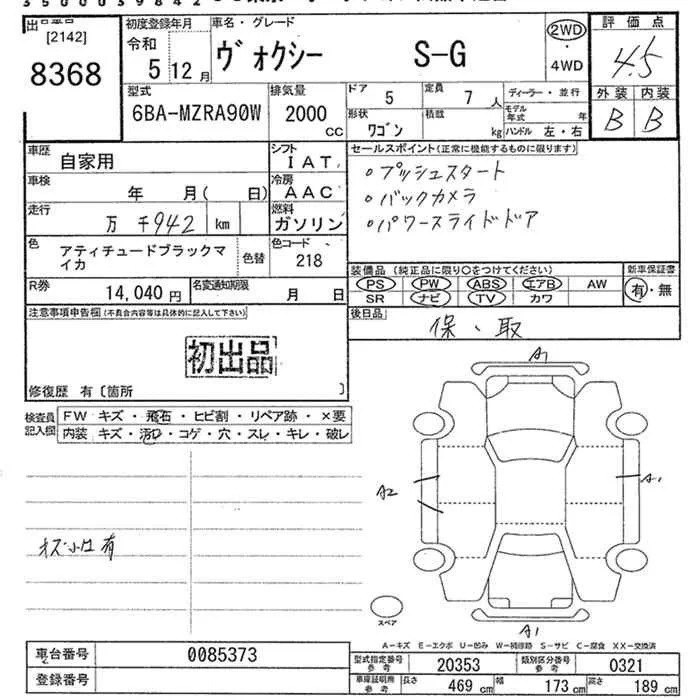 3500039842
[2142]
8368
初度登録年月
令和
5 12月
車名・グレード
ヴォクシー S-G
2WD
・
4WD
評価点
4.5
外装 内装
B B
型式
6BA-MZRA90W
排気量
2000
CC
ドア 5
定員 7人
ディーラー・並行
形状 ワゴン
積載 kg
モデル年式 年
ハンドル 左・右
車歴 自家用
シフト IAT
車検 年 月( 日)
冷房 AAC
走行 万 千942 km
燃料 ガソリン
色 アティチュードブラックマイカ
色替
色コード 218
R券 14,040円
名変通知期限 月 日
セールスポイント(正常に機能するものに限ります)
・プッシュスタート
・バックカメラ
・パワースライドドア
装備品(純正品に限り○をつけてください)
PS PW ABS エアB AW
SR ナビ TV カワ
新車保証書
有・無
後日品
保、取
注意事項申告欄(不具合内容等は具体的に記入して下さい)
初出品
修復歴 有〔箇所 〕
検査員記入欄
FW キズ・飛石・ヒビ割・リペア跡・×要
内装 キズ・汚れ・コゲ・穴・スレ・キレ・破レ
有
A1
A2
A1
A1
スペア
A-キズ E-エクボ U-凹み W-補修跡 S-サビ C-腐食 XX-交換済
車台番号 0085373
登録番号
型式指定番号 参考 20353
類別区分番号 参考 0321
車庫証明用 参考 長さ 469cm 幅 173cm 高さ 189cm